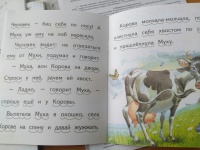 Человек бил себя по носу, а
Муха уже на лоб перешла.
Человек видит: не отвязаться
ему от Мухи, подумал и говорит:
— Муха, вон Корова на дворе.
Спроси у неё, зачем ей хвост.
— Ладно, — говорит Муха, —
спрошу ещё и у Коровы.
Вылетела Муха в окошко, села
Корове на спину и давай жужжать,
Корова молчала-молчала,
хлестнула себя хвостом по
и пришлёпнула Муху.